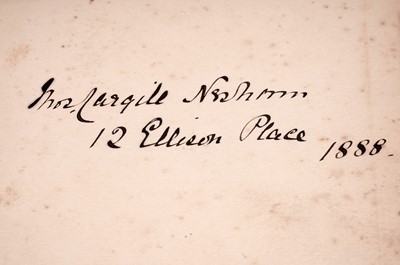 Thos. Cargill Nesham
12 Ellison Place
1888.